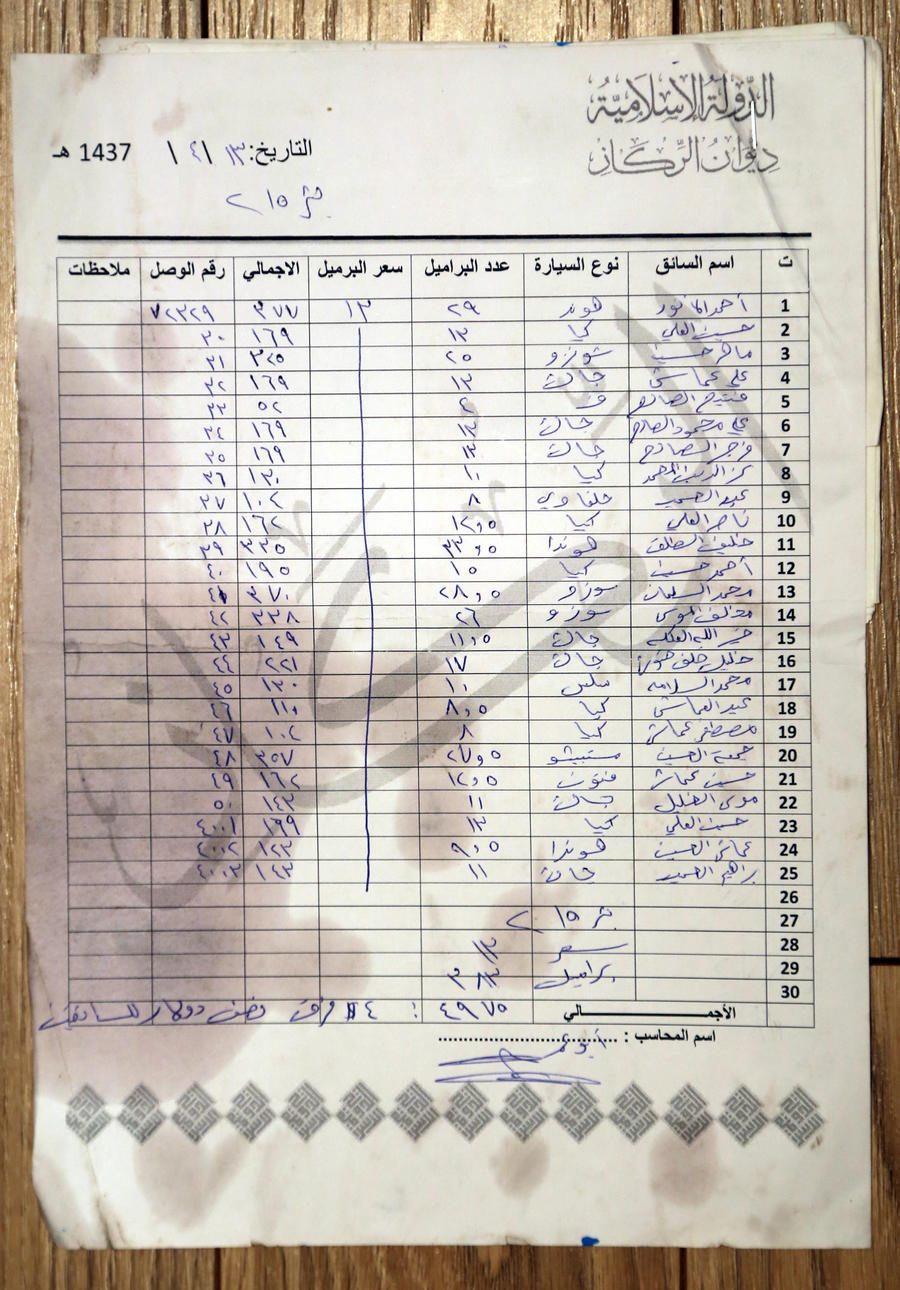 الدولة الإسلامية
ديوان الركاز
التاريخ: ١٣ / ٤ / 1437 هـ
بئر ٢١٥
ت اسم السائق نوع السيارة عدد البراميل سعر البرميل الاجمالي رقم الوصل ملاحظات
1 أحمد هوندا ٢٩ ١٣ ٣٧٧ ٧٢٣٢٩
2 حسين العلي كيا ١٣ ١٦٩ ٣٠
3 ماهر حسين سوزو ٢٥ ٣٢٥ ٣١
4 علي عماش جاك ١٣ ١٦٩ ٣٢
5 الصالح ٤ ٥٢ ٣٣
6 علي محمود الصالح جاك ١٣ ١٦٩ ٣٤
7 فرج الصالح جاك ١٣ ١٦٩ ٣٥
8 عز الدين المحمد كيا ١٠ ١٣٠ ٣٦
9 عبد الحميد حلفاوي ٨ ١٠٤ ٣٧
10 ناصر العلي كيا ١٢,٥ ١٦٢ ٣٨
11 خليف هوندا ٣٣٥ ٣٩
12 أحمد حسين كيا ١٥ ١٩٥ ٤٠
13 محمد السلمان سوزو ٢٨,٥ ٣٧٠ ٤١
14 سوزو ٢٦ ٣٣٨ ٤٢
15 جاك ١١,٥ ١٤٩ ٤٣
16 خليل خلف جاك ١٧ ٢٢١ ٤٤
17 محمد السلامه ١٠ ١٣٠ ٤٥
18 عبد العماش كيا ٨,٥ ١١٠ ٤٦
19 مصطفى عماش كيا ٨ ١٠٤ ٤٧
20 جمعة الحسين ٢٧,٥ ٣٥٧ ٤٨
21 حسين عماش ١٢,٥ ١٦٢ ٤٩
22 موسى الخليل جاك ١١ ١٤٣ ٥٠
23 حسين العلي كيا ١٣ ١٩٩ ٤٠٠١
24 عماش الحسين هوندا ٩,٥ ١٢٣ ٤٠٠٢
25 براهيم الحميد جاك ١١ ١٤٣ ٤٠٠٣
26
27 بئر ٢١٥
28 سعر ١٣
29 براميل
30
الأجمـــــالي ٤٩٧٥ : ٤$ فرق نصف دولار للسائقين
اسم المحاسب : أبو